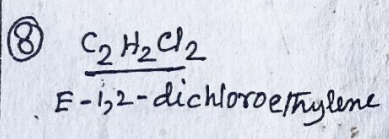 ⑧ C₂H₂Cl₂
E-1,2-dichloroethylene